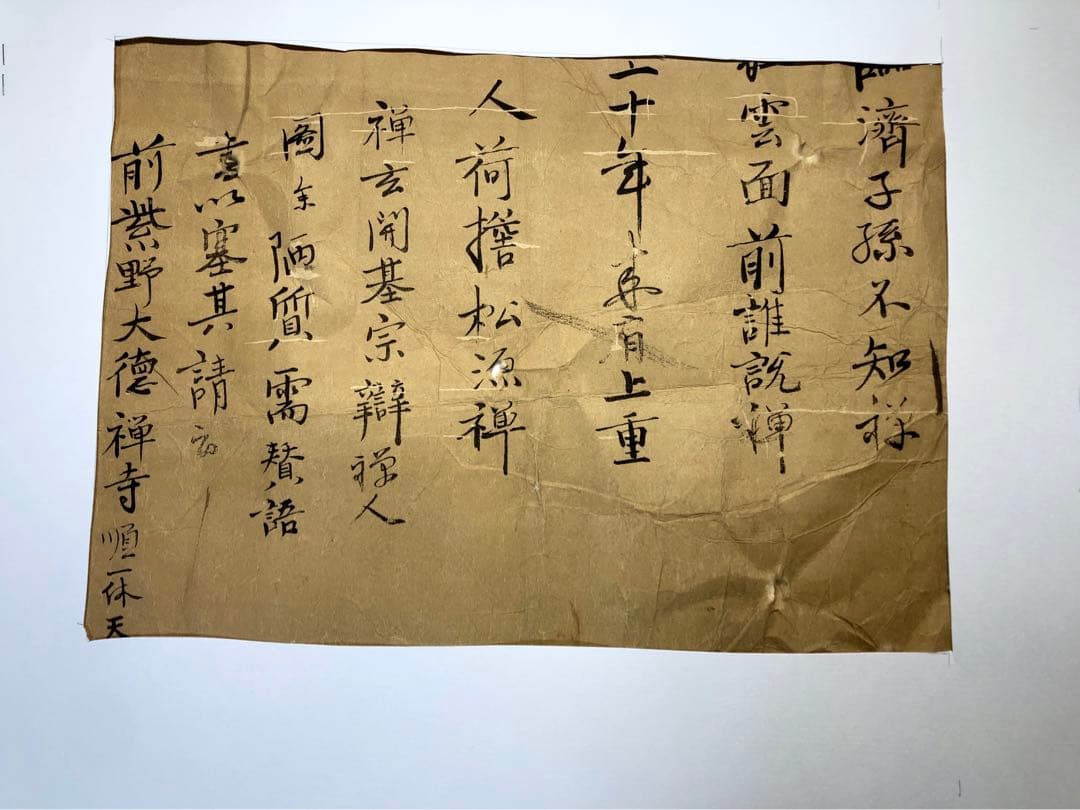 濟子孫不知禅
雲面前誰説禅
十年来肩上重
人荷擔松源禅
禅玄開基宗辯禅人
圖余陋質需賛語
書以塞其請云
前紫野大德禅寺順一休天